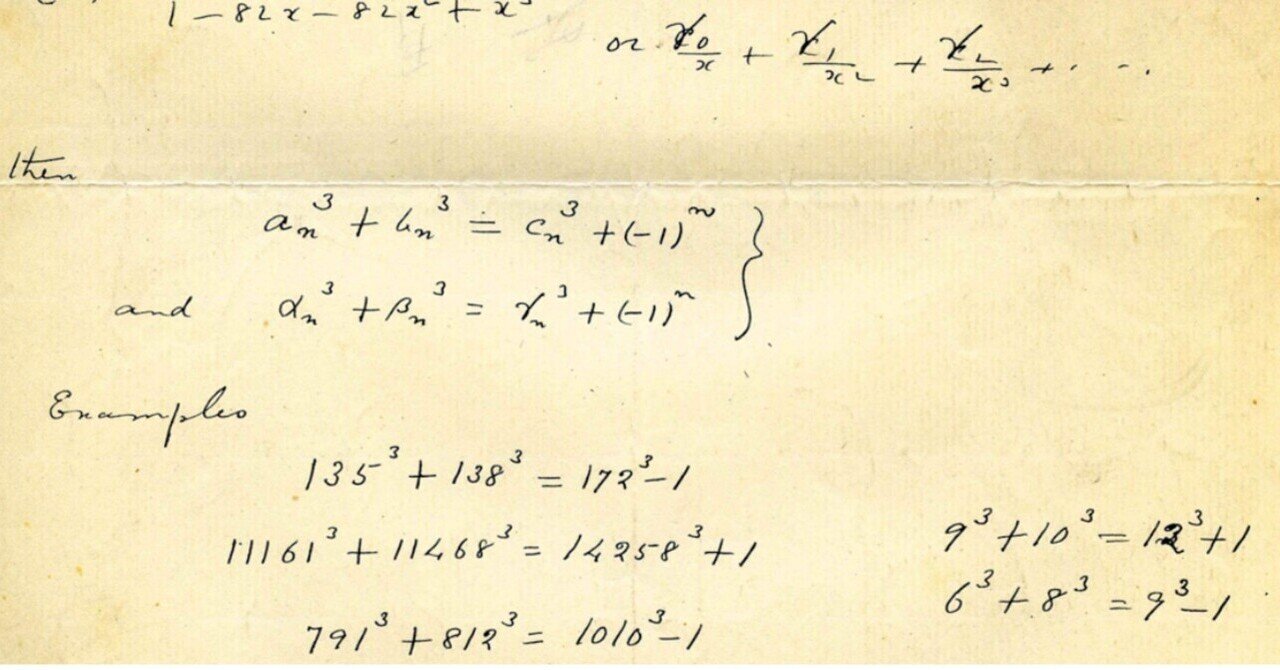 1 − 82x − 82x² + x³
or γ₀/x + γ₁/x² + γ₂/x³ + · · ·
then
aₙ³ + bₙ³ = cₙ³ + (−1)ⁿ }
and αₙ³ + βₙ³ = γₙ³ + (−1)ⁿ }
Examples
135³ + 138³ = 172³ − 1
11161³ + 11468³ = 14258³ + 1
791³ + 812³ = 1010³ − 1
9³ + 10³ = 12³ + 1
6³ + 8³ = 9³ − 1